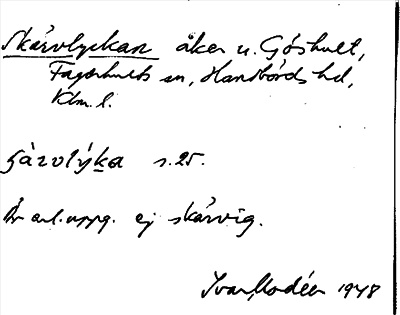 Skärvlyckan åker u. Göshult,
Fagerhults sn, Handbörds hd,
Klm. l.
s. 25.
Är enl. uppg. ej skärvig.
Ivar Modéer 1948